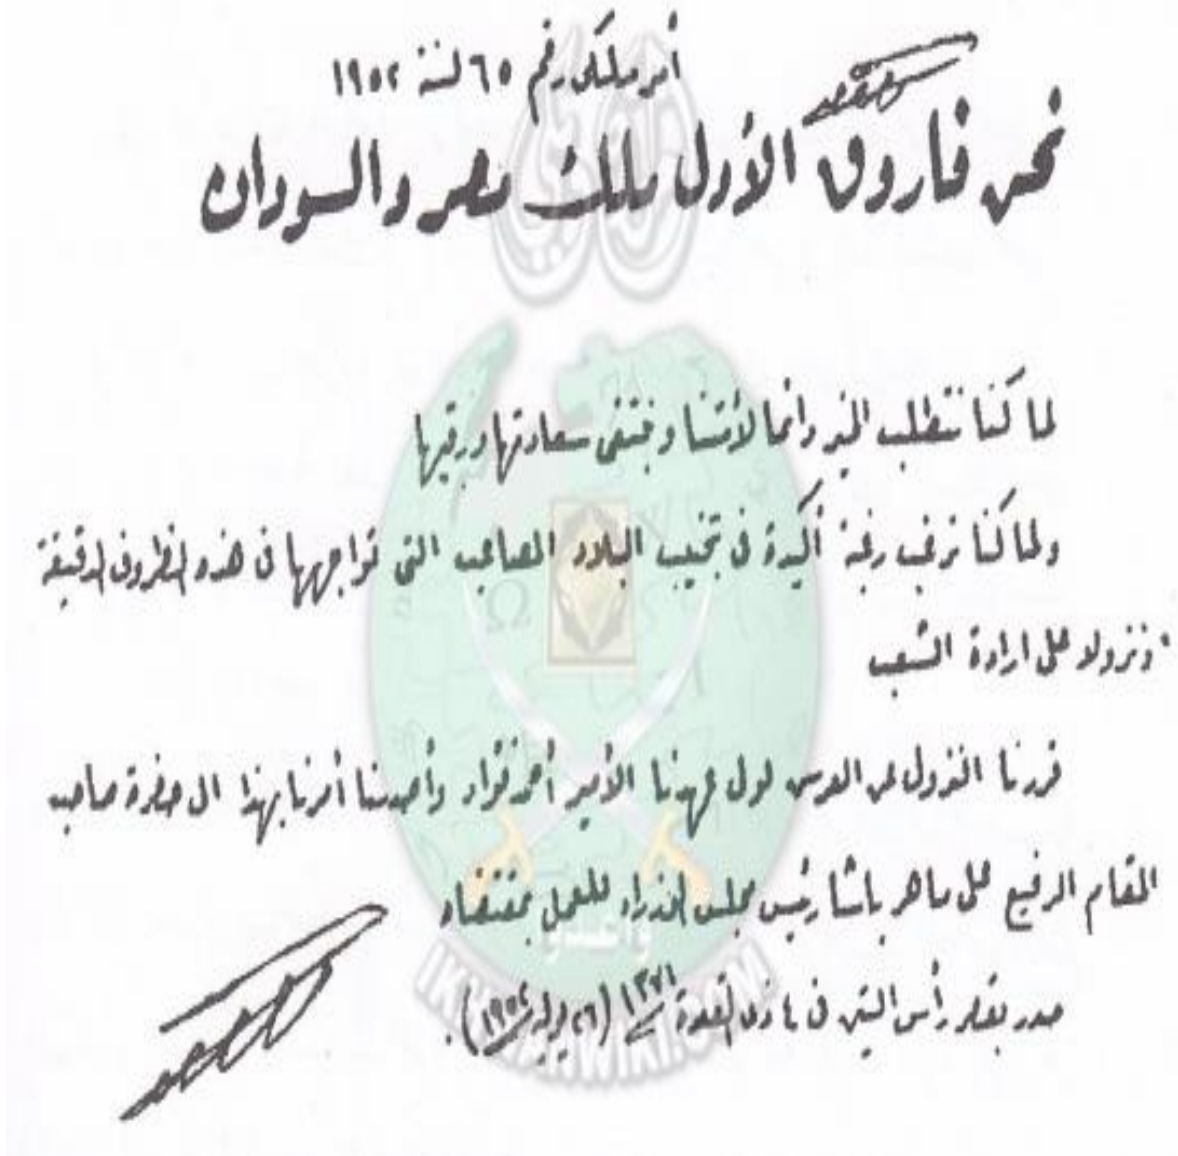 أمر ملكى رقم ٦٥ لسنة ١٩٥٢
نحن فاروق الأول ملك مصر والسودان
لما كنا نتطلب الخير دائما لأمتنا ونبتغى سعادتها ورقيها
ولما كنا نرغب رغبة أكيدة فى تجنيب البلاد المصاعب التى تواجهها فى هذه الظروف الدقيقة
ونزولا على ارادة الشعب
قررنا النزول عن العرش لولى عهدنا الأمير أحمد فؤاد وأصدرنا أمرنا بهذا الى حضرة صاحب
المقام الرفيع على ماهر باشا رئيس مجلس الوزراء للعمل بمقتضاه
صدر بقصر رأس التين فى ٤ ذى القعدة ١٣٧١ (٢٦ يوليه ١٩٥٢).
IKHWANWIKI.COM